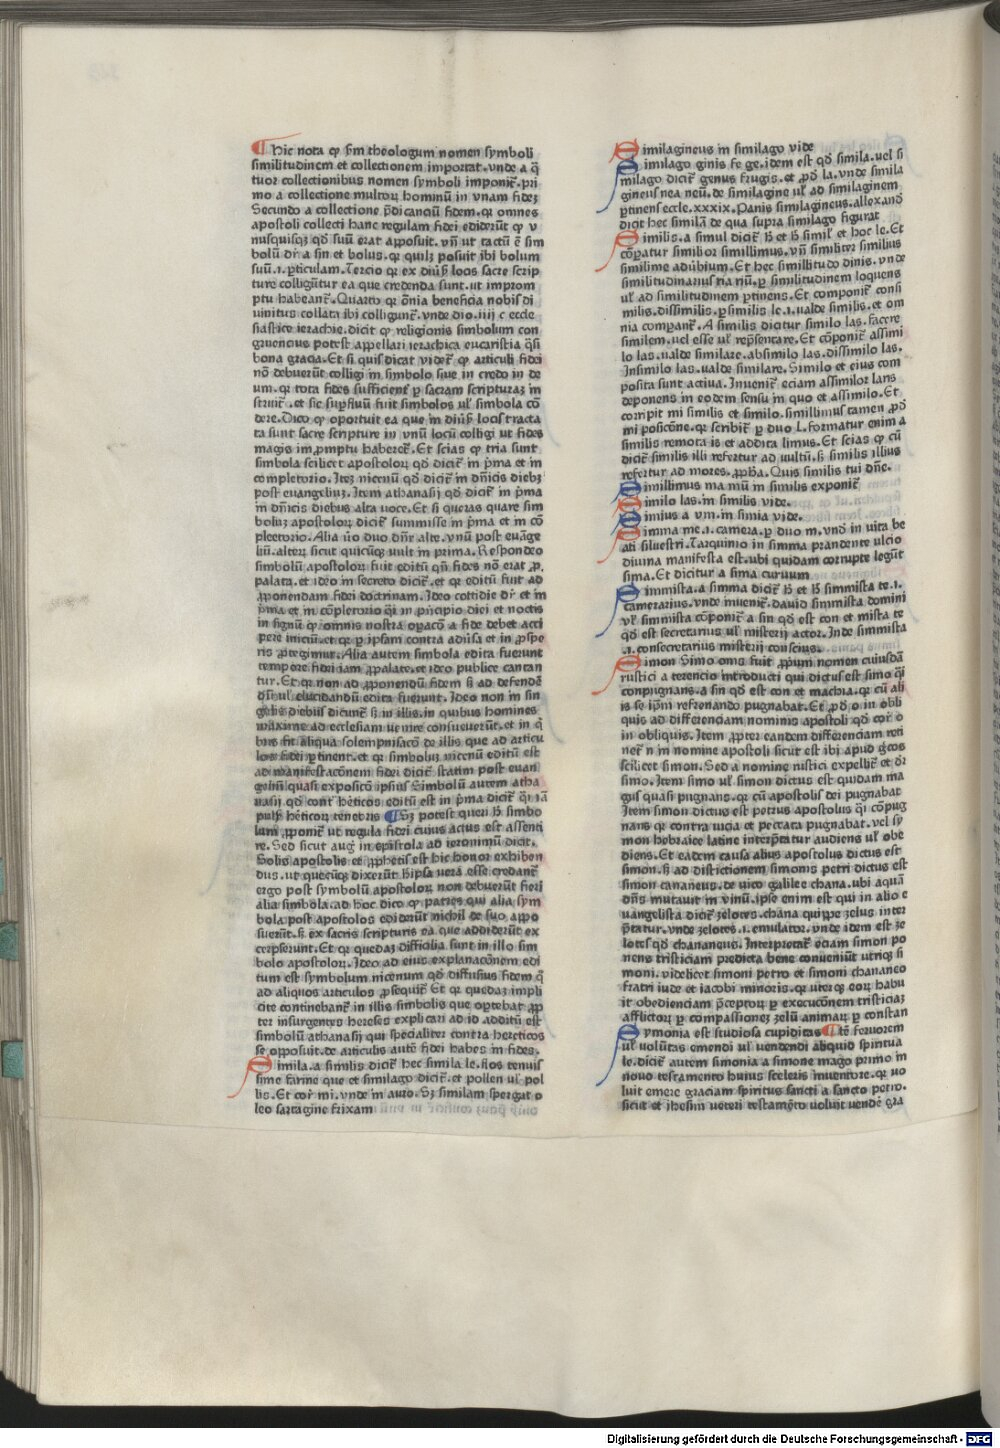 ¶ Hic nota qͥ ẜm theologum nomen symboli
similitudinem et collectionem importat. vnde a q̄
tuor collectionibus nomen symboli imponit̄. pri
mo a collectione multoꝝ hominū in vnam fidez
Secundo a collectione p̄dicanciū fidem. qꝛ omnes
apostoli collecti hanc regulam fidei ediderūt qͥ v
nusquisqꝫ qd̓ suū erat apposuit. vn̄ ut tactū ē sim
bolū dr̄ a sin et bolus. qꝛ quilꝫ posuit ibi bolum
suū .i. ꝑticulam. Tercio qꝛ ex diuſ̓ locis sacre scrip
ture colligūtur ea que credenda sunt. ut imprом
ptu habeant̄. Quarto qꝛ om̄ia beneficia nobis di
uinitus collata ibi colligunt̄. vnde dio. iiij c eccle
siastice ierachie. dicit qͥ religionis simbolum con
gruencius potest appellari ierachica eucaristia q̄si
bona gracia. Et si quis dicat videt̄ qͥ articuli fidei
nō debuerūt colligi in simbolo siue in credo in de
um. qꝛ tota fides sufficient̄ ꝑ sacram scripturaz in
struit̄. et sic suꝑfluū fuit simbolos ul̓ simbola cō
dere. Dico qͥ oportuit ea que in diuſ̓ locis tracta
ta sunt sacre scripture in vnū locū colligi ut fides
magis im promptu haberet̄. Et scias qͥ tria sunt
simbola scilicet apostoloꝝ qd̓ dicit̄ in p̓ma et in
completorio. Itez nicenū qd̓ dicit̄ in dn̄icis diebꝫ
post euangeliuz. Item athanasij qd̓ dicit̄ in p̓ma
in dn̄icis diebus alta uoce. Et si queras quare sim
boluz apostoloꝝ dicit̄ summisse in p̓ma et in cō
plectorio. Alia v̓o duo dn̄r alte. vnū post euāge
liū. alterz sicut quicūqꝫ vult in prima. Respondeo
simbolū apostoloꝝ fuit editū qn̄ fides nō erat ꝓ
palata. et ideo in secreto dicit̄. et qꝛ editū fuit ad
ꝓponendam fidei doctrinam. Ideo cottidie dr̄ et in
p̓ma et in cōpletorio q̄i in pͥncipio diei et noctis
in signū qͥ omnis nostra oꝑacō a fide debet acci
pere iniciū. et qꝛ ꝑ ipsam contra adūsa et in ꝓspe
ris ꝓtegimur. Alia autem simbola edita fuerunt
tempore fidei iam ꝓpalate. et ideo publice cantan
tur. Et qꝛ non ad ꝓponendū fidem ſꝫ ad defendē
dū ul̓ elucidandū edita fuerunt. Ideo non in sin
gulis diebus dicunt̄ ſꝫ in illis. in quibus homines
maxime ad ecclesiam uenire consueuerūt. et in q̄
bus fit aliqua solempnisacō de illis que ad articu
los fidei ꝑtinent. et qꝛ simboluz nicenū editū est
ad manifestacōnem fidei dicit̄ statim post euan
geliū quasi exposicō ipsius Simbolū autem atha
nasij qd̓ cont̄ h̓eticos editū est in p̓ma dicit̄ q̄i iā
pulſ̓ h̓eticoꝝ tenebris ¶ Sꝫ potest queri h̓ simbo
lum ꝓponit̄ ut regula fidei cuius actus est assenti
re. Sed sicut aug̓ in epistola ad ieronimū dicit.
Solis apostolis et ꝓphetis est hic honor exhiben
dus. ut quecūqꝫ dixerūt h̓ ipsa uera esse credant̄
ergo post symbolū apostoloꝝ non debuerūt fieri
alia simbola. ad hoc dico qͥ patres qui alia sym
bola post apostolos ediderūt nichil de suo appo
suerūt. ſꝫ ex sacris scripturis ea que addiderūt ex
cerpserunt. Et qꝛ quedaz difficilia sunt in illo sim
bolo apostoloꝝ. Ideo ad eius explanacōnem edi
tum est symbolum nicenum qd̓ diffusius fidem q̄
ad aliquos articulos ꝓsequit̄ Et qꝛ quedaz impli
cite continebant̄ in illis simbolis que oꝑtebat ꝓp
ter insurgentes hereses explicari ad id additū est
simbolū athanasij qui specialiter contra hereticos
se opposuit. de articulis autē fidei habes in fides.
Simila. a similis dicit̄ hec simila le. flos tenuis
sime farine que et similago dicit̄. et pollen ul̓ pol
lis. Et cor̄ mi. vnde in auro. Sꝫ similam spergat o
leo sartagine frixam
Similagineus in similago vide
Similago ginis fe ge. idem est qd̓ simila. uel si
milago dicit̄ genus frugis. et ꝓd̓ la. vnde simila
gineus nea neū. de similagine ul̓ ad similaginem
ꝑtinens eccle. xxxix. Panis similagineus. allexand̓
dicit hec similā de qua supra similago figurat
Similis. a simul dicit̄ h̓ et h̓ simil̓ et hoc le. Et
cōꝑatur similior simillimus. vn̄ similiter similius
similime adūbium. Et hec simillitudo dinis. vnde
similitudinarius ria riū. ꝑ similitudinem loquens
ul̓ ad similitudinem ꝑtinens. Et componit̄ consi
milis. dissimilis. ꝑsimilis le .i. ualde similis. et om
nia comꝑant̄. A similis dicitur similo las. facere
similem. uel esse ul̓ rep̄sentare. Et cōponit̄ assimi
lo las. ualde similare. absimilo las. dissimilo las.
Insimilo las. ualde similare. Similo et eius com
posita sunt actiua. Inuenit̄ eciam assimilor laris
deponens in eodem sensu in quo et assimilo. Et
corripit mi similis et similo. simillimus tamen ꝓd̓
mi posicōne. qꝛ scribit̄ ꝑ duo l. formatur enim a
similis remota is et addita limus. Et scias qͥ cū
dicit̄ similis illi refertur ad uultū. ſꝫ similis illius
refertur ad mores. ꝓƀa. Quis similis tui dn̄e.
Simillimus ma mū in similis exponit̄
Similo las. in similis vide.
Simius a vm. in simia vide.
Simma me .i. camera. ꝑ duo m. vnd̓ in uita be
ati siluestri. Tarquinio in simma prandente ulcio
diuina manifesta est. ubi quidam corrupte legūt
sima. Et dicitur a sima curuum
Simmista. a simma dicit̄ h̓ et h̓ simmista te .i.
camerarius. vnde inuenit̄. dauid simmista domini
vl̓ simmista cōponit̄ a sin qd̓ est con et mista te
qd̓ est secretarius ul̓ misterij actor. Inde simmista
.i. consecretarius misterij conscius.
Simon Simo ons fuit ꝓpriū nomen cuiusdā
rustici a terencio introducti qui dictus est simo q̄i
conpugnans. a sin qd̓ est con et machia. qꝛ cū ali
is se ip̄m refrenando pugnabat. Et ꝓd̓ o in obli
quis ad differenciam nominis apostoli qd̓ cor̄ o
in obliquis. Item ꝓpter eandem differenciam reti
net̄ n in nomine apostoli sicut est ibi apud g̓cos
scilicet simon. Sed a nomine rustici expellit̄ et dr̄
simo. Item simo ul̓ simon dictus est quidam ma
gus quasi pugnans. qꝛ cū apostolis dei pugnabat
Item simon dictus est petrus apostolus q̄i cōpug
nans qꝛ contra uicia et peccata pugnabat. vel sy
mon hebraice latine interp̄tatur audiens ul̓ obe
diens. Et eadem causa alius apostolus dictus est
simon. ſꝫ ad distictionem simonis petri dictus est
simon cananeus. de vico galilee chana. ubi aquā
dn̄s mutauit in vinū. ipse enim est qui in alio e
uangelista dicit̄ zelotes. chana quippe zelus inter
p̄tatur. vnde zelotes .i. emulator. vnde idem est ze
lotes qd̓ chananeus. Interpretat̄ eciam simon po
nens tristiciam predicta bene conueniūt utriqꝫ si
moni. videlicet simoni petro et simoni chananeo
fratri iude et iacobi minoris. qꝛ uterqꝫ eoꝝ habu
it obedienciam p̄ceptoꝝ ꝑ execucōnem tristiciaz
afflictoꝝ ꝑ compassionez zelū animaꝝ ꝑ constan
Symonia est studiosa cupiditas ¶ tē feruorem
ul̓ volūtas emendi ul̓ uendendi aliquid spiritua
le. dicit̄ autem simonia a simone mago primo in
nouo testamento huius sceleris inuentore. qꝛ uo
luit emere graciam spiritus sancti a sancto petro.
sicut et ihesim ueteri testamēto uoluit uende̓ gra
Digitalisierung gefördert durch die Deutsche Forschungsgemeinschaft - DFG